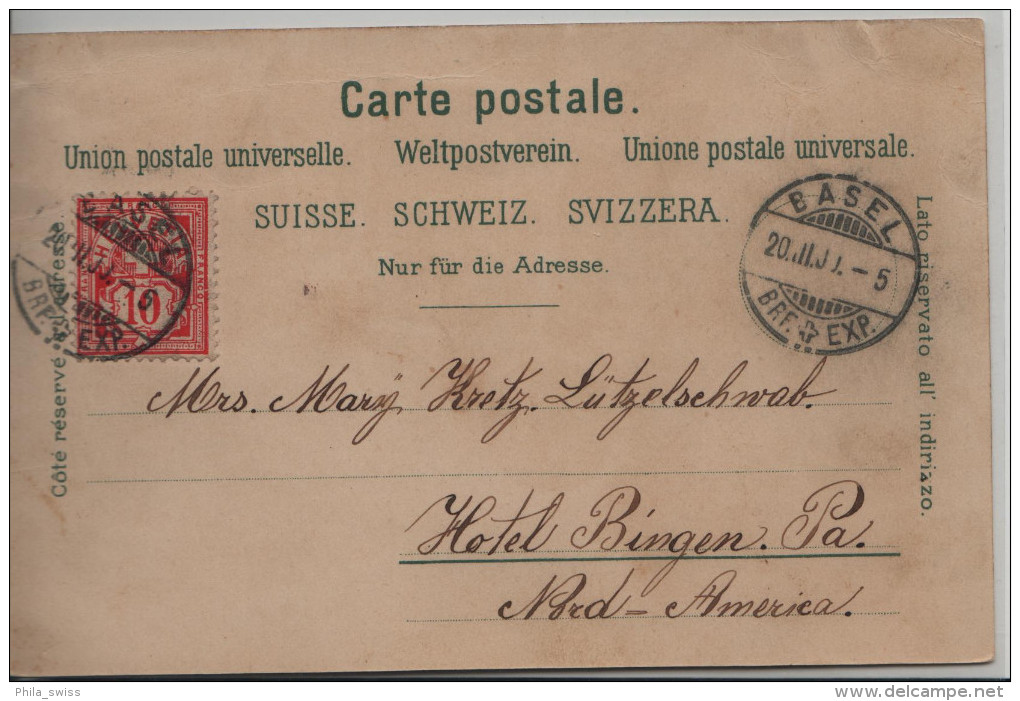 Carte postale.
Union postale universelle. Weltpostverein. Unione postale universale.
SUISSE. SCHWEIZ. SVIZZERA.
Nur für die Adresse.
Côté réservé à l'adresse
Lato riservato all' indirizzo.
FRANCO
10
BASEL
BRF. EXP.
BASEL
20.III. – 5
BRF. EXP.
Mrs. Mary Kretz. Lützelschwab.
Hotel Bingen. Pa.
Nord-America.
Phila_swiss
www.delcampe.net